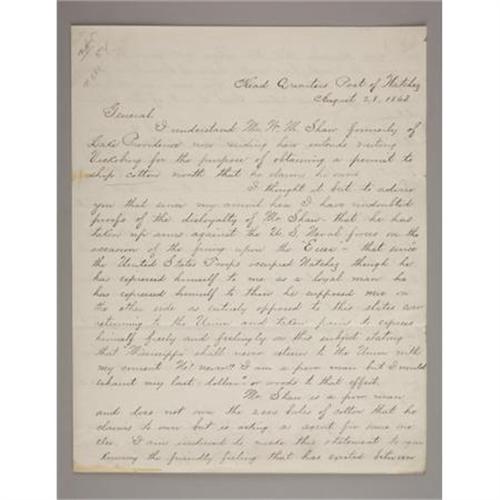 Head Quarters Post of Natchez
August 28, 1863
General
I understand Mr. W. M. Shaw formerly of
Lake Providence now residing here intends visiting
Vicksburg for the purpose of obtaining a permit to
ship cotton north that he claims he owns
I thought it but to advise
you that since my arrival here I have undoubted
proofs of the disloyalty of Mr Shaw - that he has
taken up arms against the U. S. Naval forces on the
occasion of the firing upon the "Essex" - that since
the United States Troops occupied Natchez though he
has expressed himself to me as a loyal man he
has expressed himself to those he supposed were on
the other side as entirely opposed to this state ever
returning to the Union and taken pains to express
himself freely and feelingly on this subject stating
that "Mississippi shall never return to the Union with
my consent No! never!! I am a poor man but I would
exhaust my last dollar" or words to that effect.
Mr. Shaw is a poor man
and does not own the 2000 bales of cotton that he
claims to own but is acting as agent for some one
else. I am induced to make this statement to you
knowing the friendly feeling that has existed between